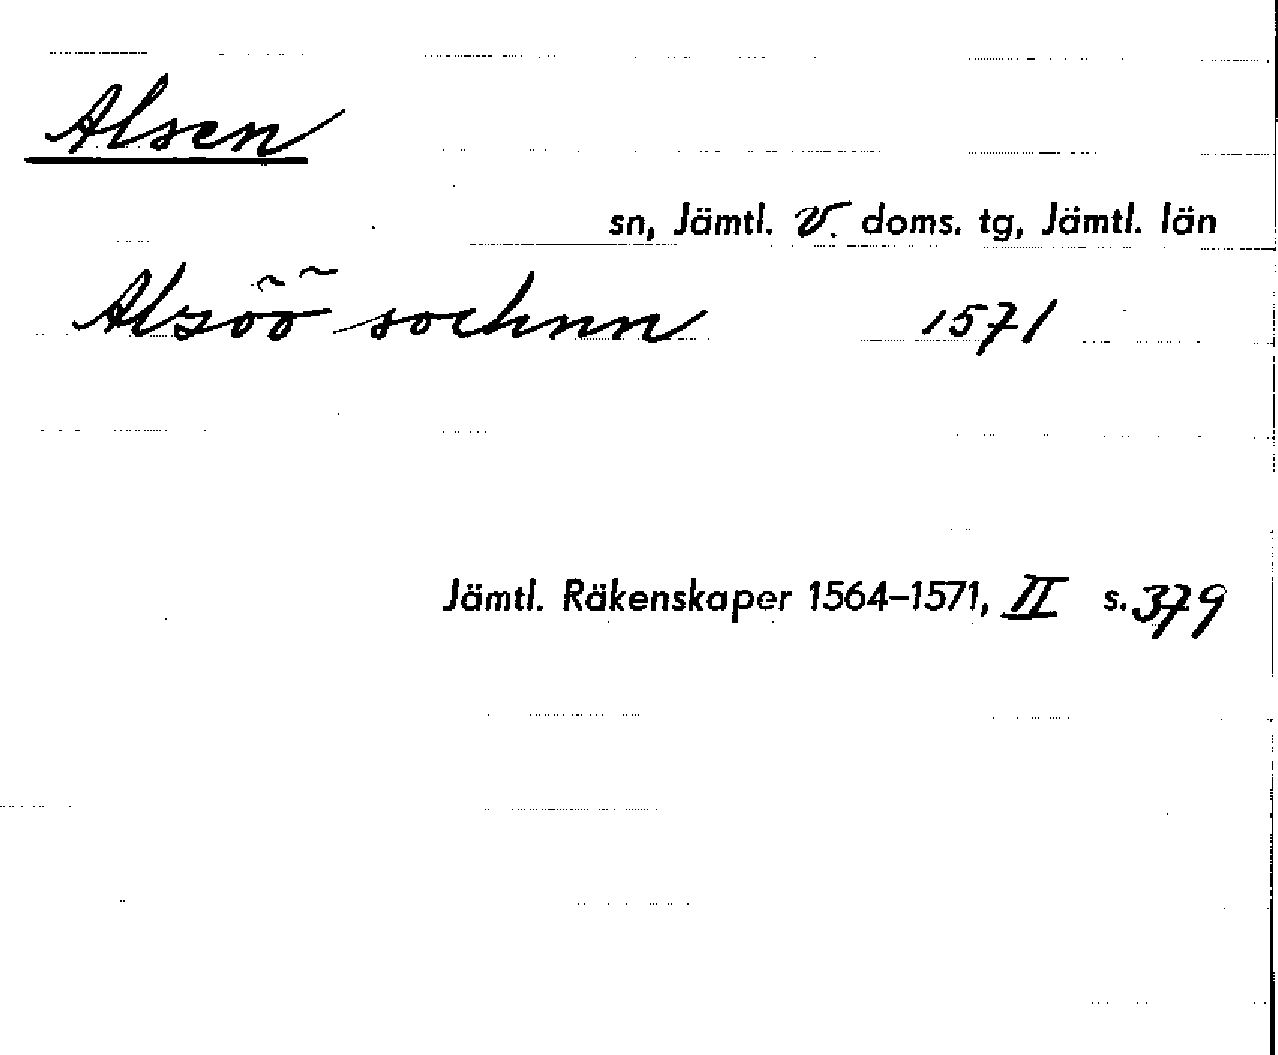 Alsen
sn, Jämtl. V. doms. tg, Jämtl. län
Alzöö sochnn 1571
Jämtl. Räkenskaper 1564–1571, II s. 379